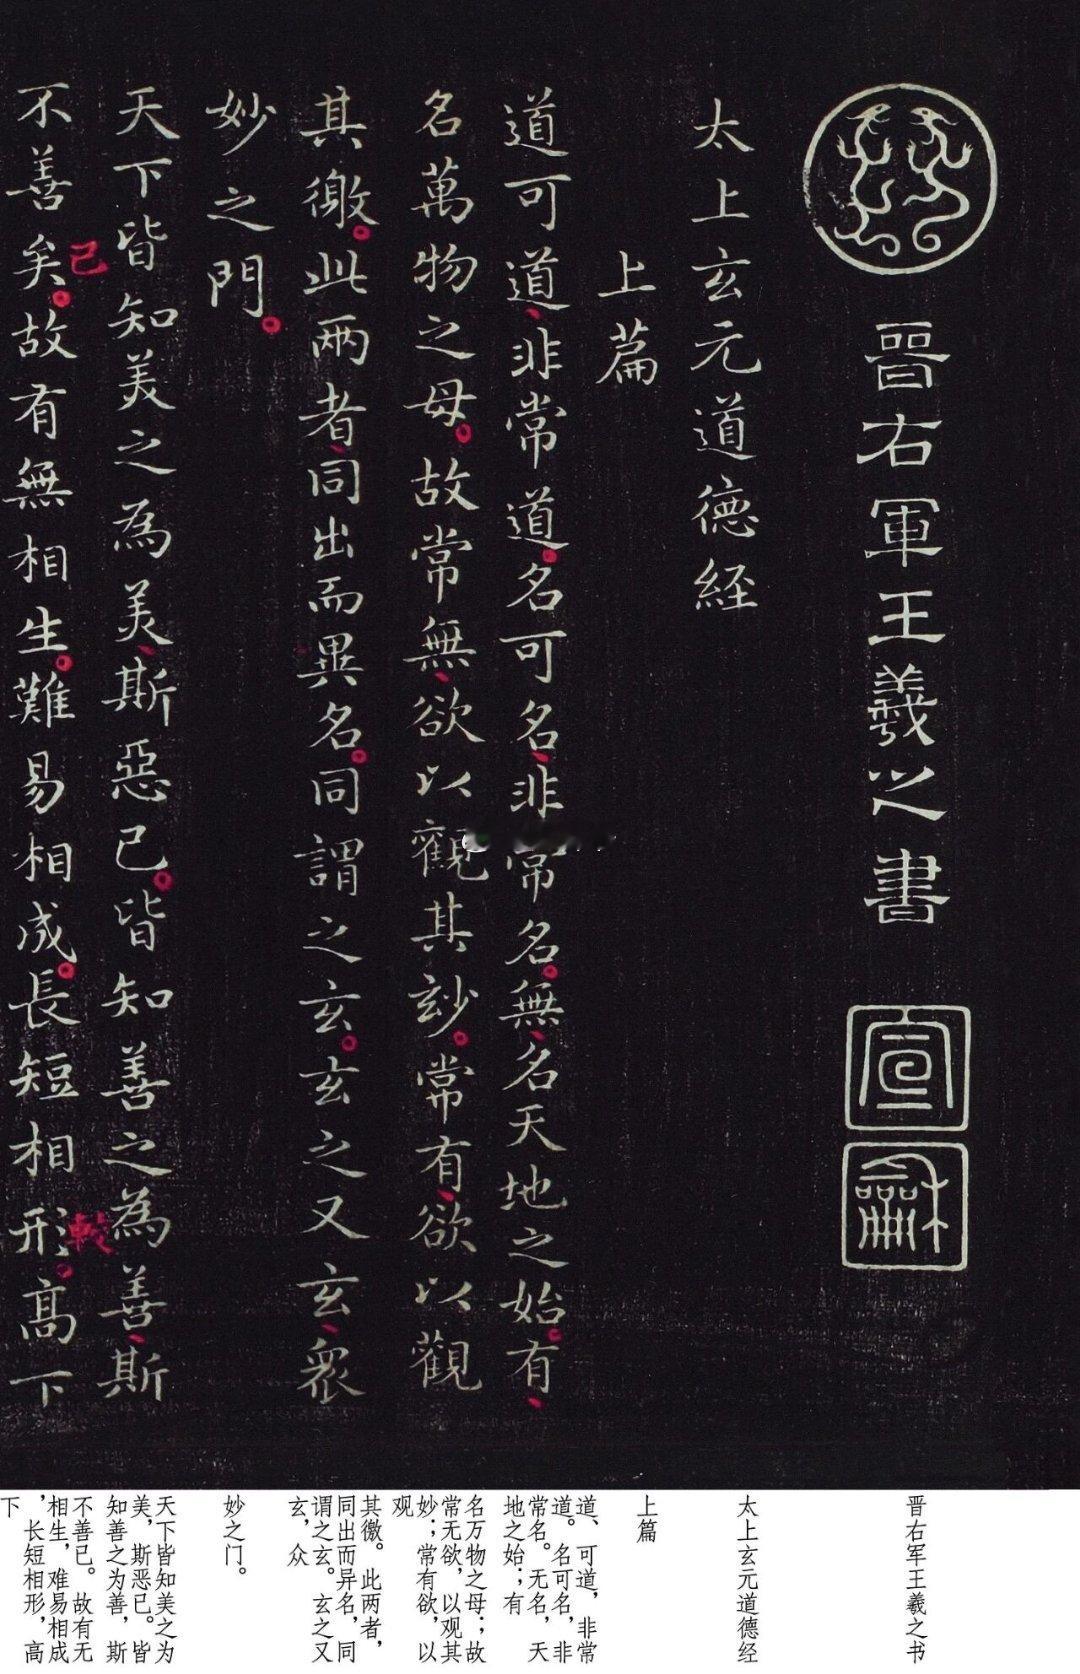 晉右軍王羲之書
宣
龢
太上玄元道德經
上篇
道可道、非常道。名可名、非常名。無、名天地之始。有、
名萬物之母。故常無、欲以觀其妙。常有、欲以觀
其徼。此两者、同出而異名。同謂之玄。玄之又玄、衆
妙之門。
天下皆知美之為美、斯惡已。皆知善之為善、斯
不善矣。故有無相生。難易相成。長短相形。高下
已
較
晋右军王羲之书
太上玄元道德经
上篇
道、可道，非常
道。名可名，非
常名。无名，天
地之始；有
名万物之母；故
常无欲，以观其
妙；常有欲，以
观
其徼。此两者，
同出而异名，同
谓之玄。玄之又
玄，众
妙之门。
天下皆知美之为
美，斯恶已。皆
知善之为善，斯
不善已。故有无
相生，难易相成
，长短相形，高
下